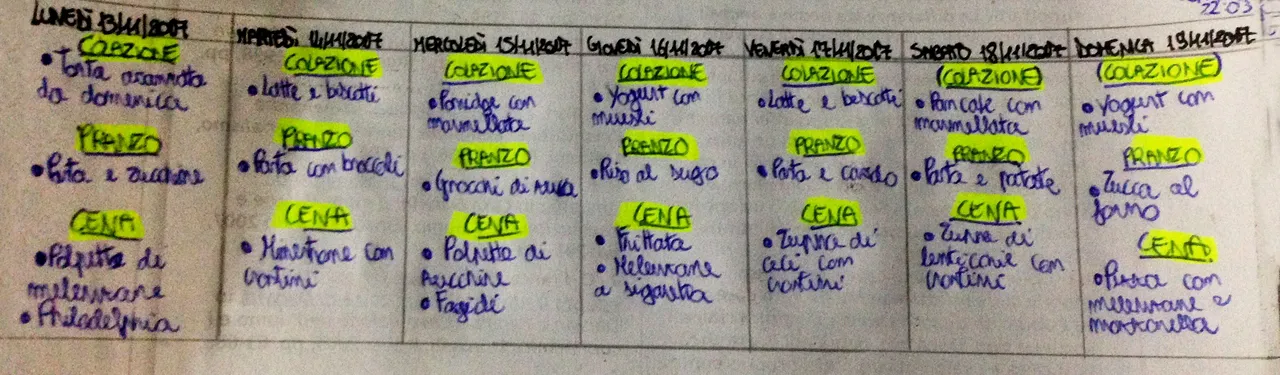 22:03
LUNEDÌ 13/11/2017
COLAZIONE
• Torta avanzata
da domenica
PRANZO
• Pasta e zucchine
CENA
• Polpette di
melenzane
• Philadelphia
MARTEDÌ 14/11/2017
COLAZIONE
• Latte e biscotti
PRANZO
• Pasta con broccoli
CENA
• Minestrone con
crostini
MERCOLEDÌ 15/11/2017
COLAZIONE
• Porridge con
marmellata
PRANZO
• Gnocchi di zucca
CENA
• Polpette di
zucchine
• Fagioli
GIOVEDÌ 16/11/2017
COLAZIONE
• Yogurt con
muesli
PRANZO
• Riso al sugo
CENA
• Frittata
• Melenzane
a sigaretta
VENERDÌ 17/11/2017
COLAZIONE
• Latte e biscotti
PRANZO
• Pasta e cavolo
CENA
• Zuppa di
ceci con
crostini
SABATO 18/11/2017
(COLAZIONE)
• Pancake con
marmellata
PRANZO
• Pasta e patate
CENA
• Zuppa di
lenticchie con
crostini
DOMENICA 19/11/2017
(COLAZIONE)
• Yogurt con
muesli
PRANZO
• Zucca al
forno
CENA
• Pizza con
melenzane e
mozzarella